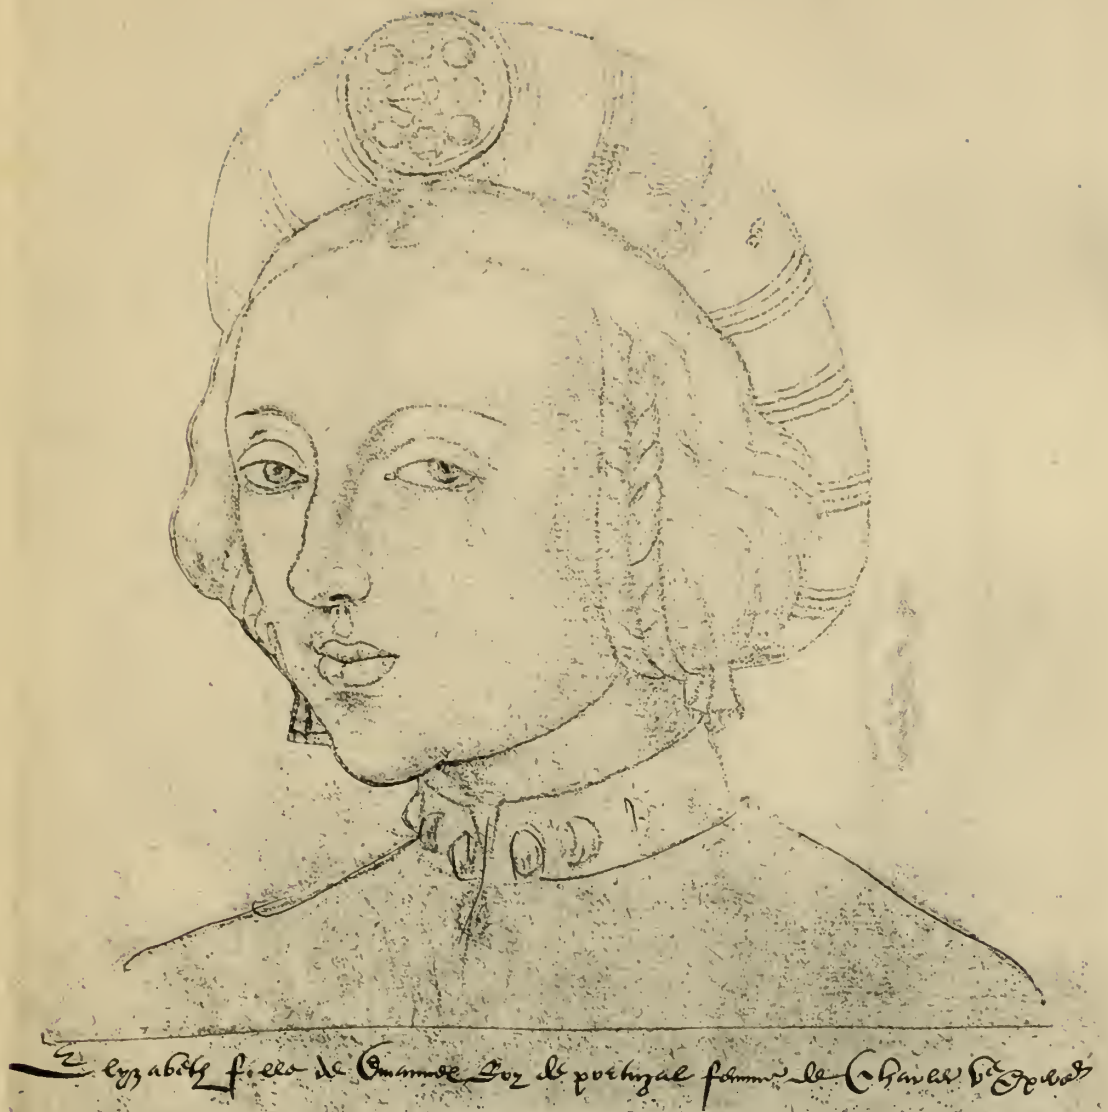 Elyzabeth fille de Emanuel Roy de portugal femme de Charles Ve